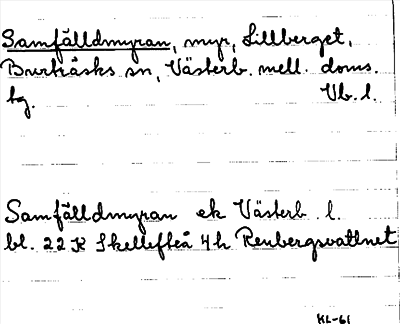 Samfälldmyran, myr, Lillberget,
Burträsks sn, Västerb. mell. doms.
tg. Vb. l.
Samfälldmyran ek Västerb l.
bl. 22 K Skellefteå 4h Renbergsvattnet
KL-61